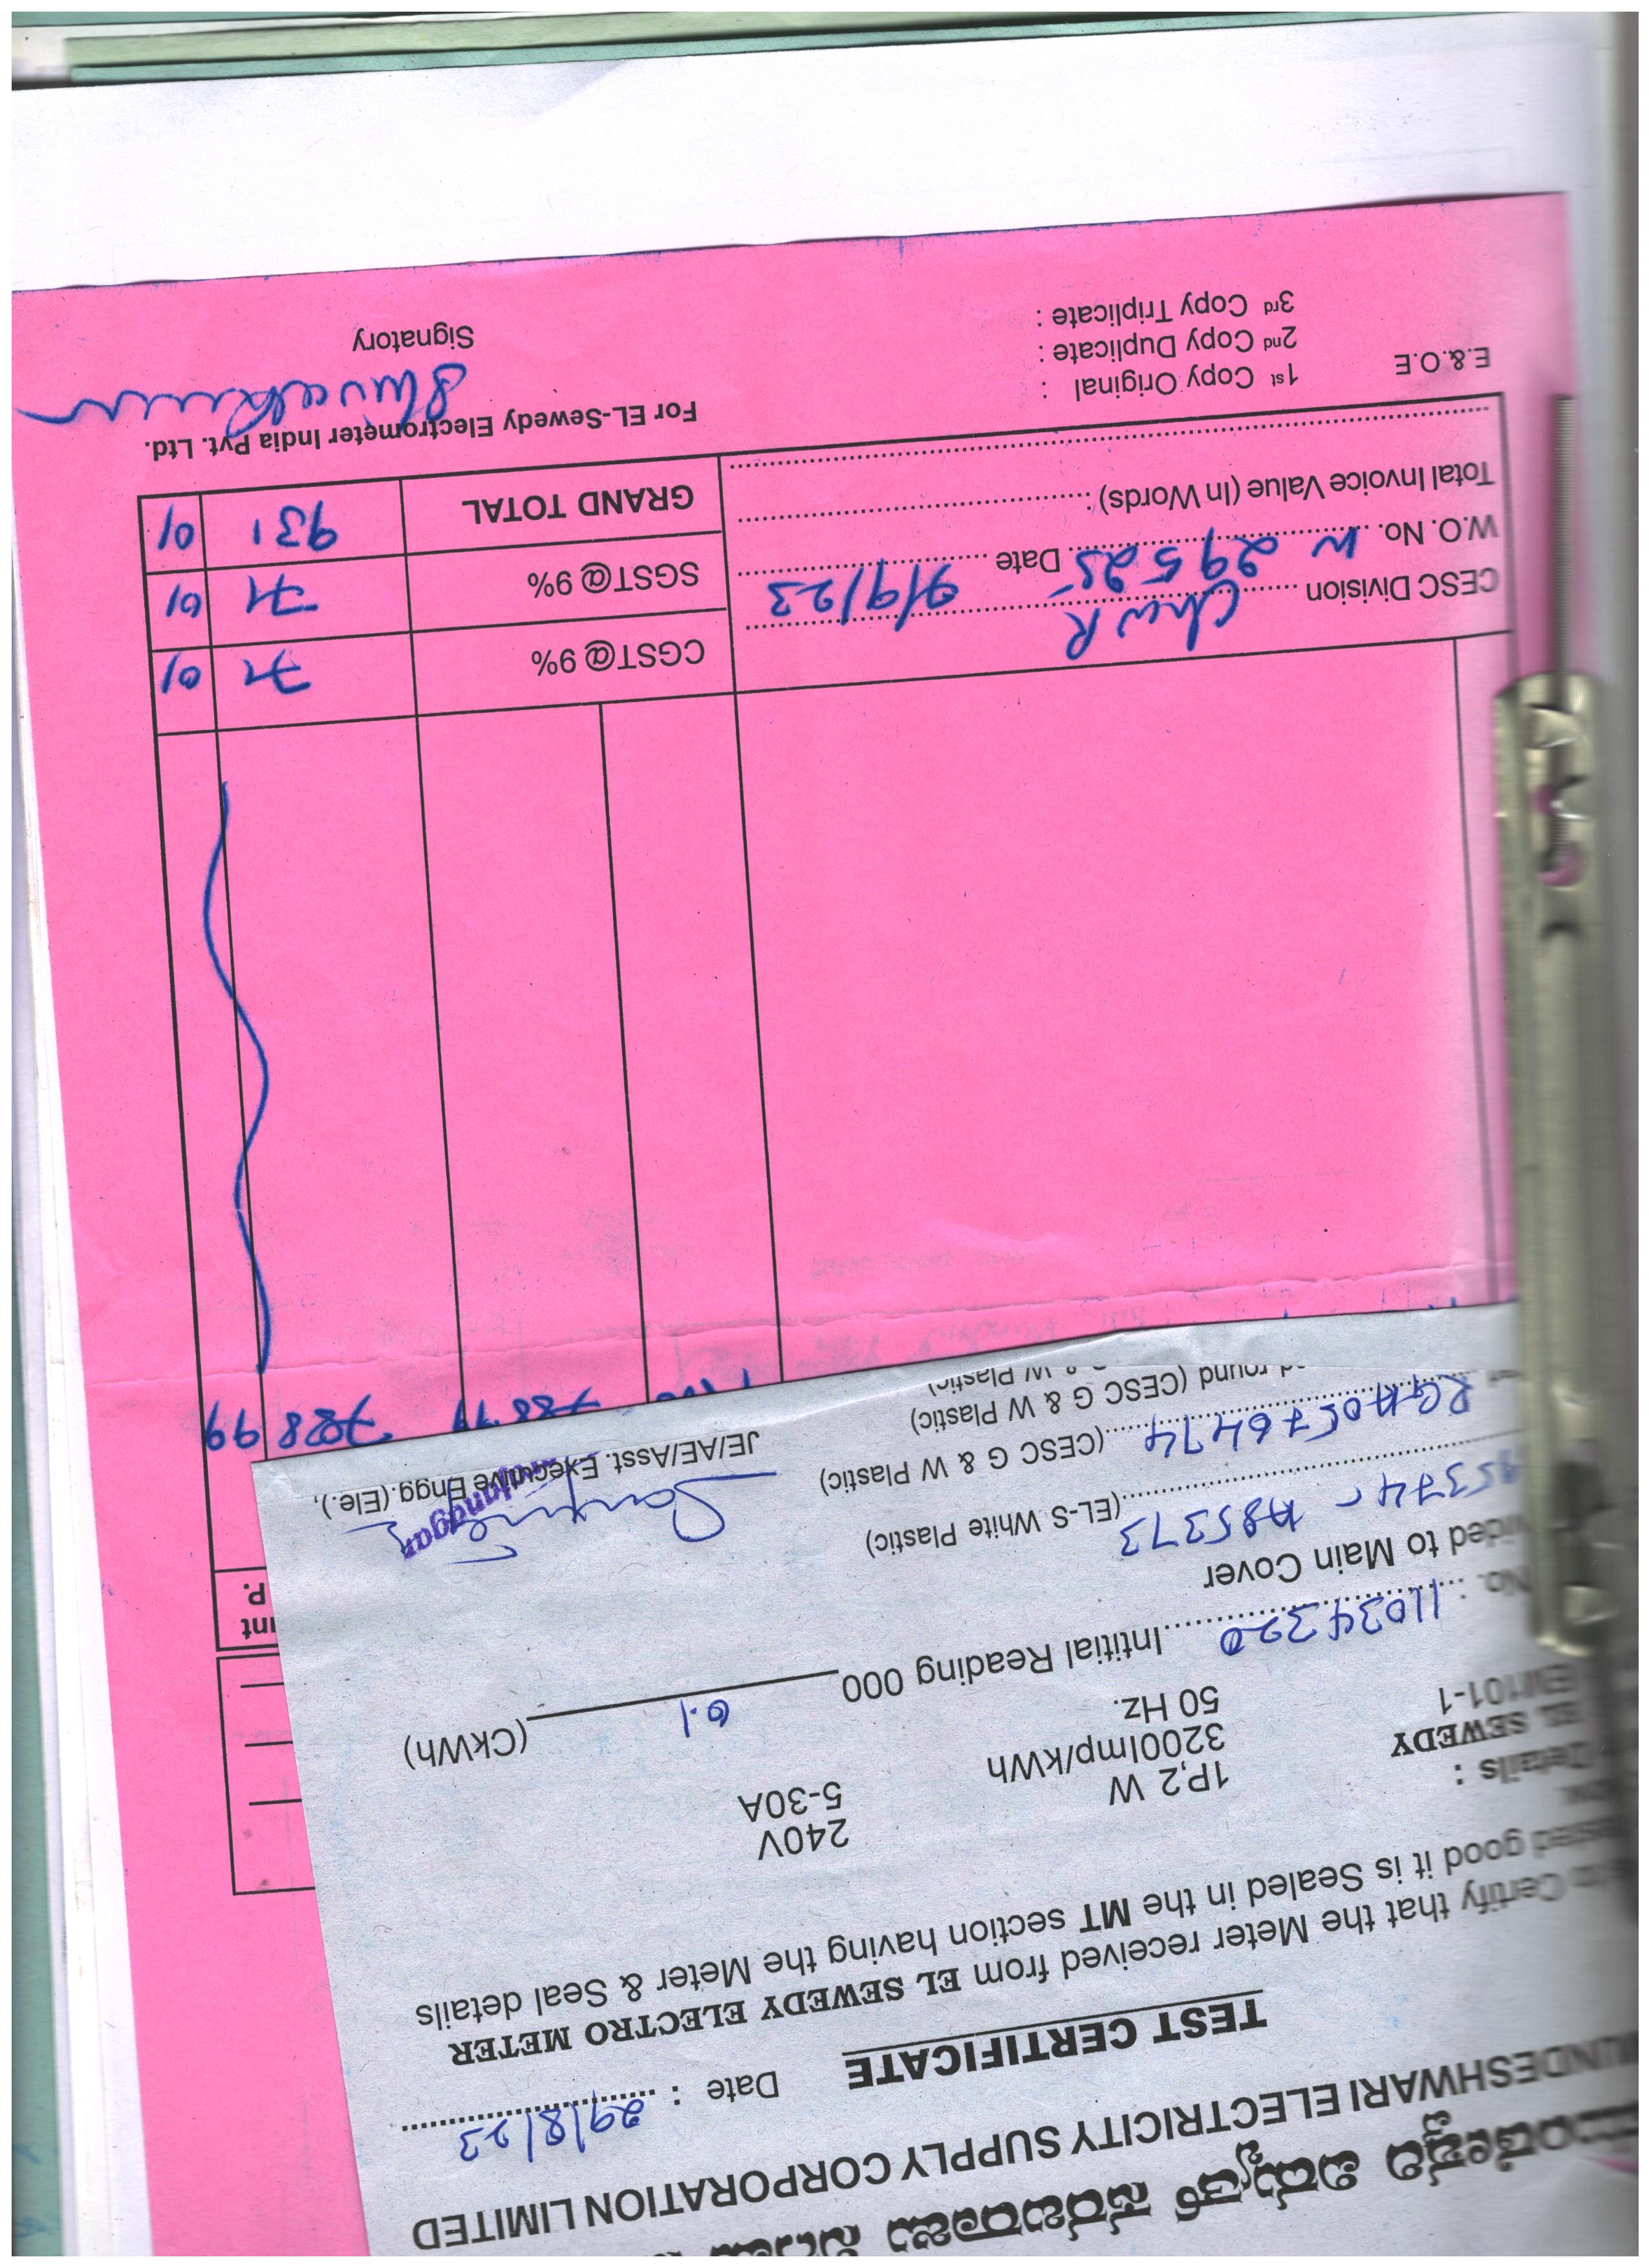 ವಿದ್ಯುತ್ ಸರಬರಾಜು
UNDESHWARI ELECTRICITY SUPPLY CORPORATION LIMITED
Date : 29/8/23
TEST CERTIFICATE
Certify that the Meter received from EL SEWEDY ELECTRO METER
good it is Sealed in the MT section having the Meter & Seal details
Details :
EL SEWEDY 1P,2 W 240V
EM101-1 3200Imp/kWh 5-30A
50 Hz.
No. : 11034320 Intitial Reading 000 0.1 (CkWh)
ided to Main Cover
95374 - A85373 (EL-S White Plastic)
RGH0576474 (CESC G & W Plastic)
round (CESC G & W Plastic)
& W Plastic)
JE/AE/Asst. Executive Engg.(Ele.),
nt
P.
788 99 788 99
CGST@ 9% 71 01
SGST@ 9% 71 01
GRAND TOTAL 931 01
CESC Division ChnR
W.O. No. 29525 Date 9/9/23
Total Invoice Value (In Words) :
For EL-Sewedy Electrometer India Pvt. Ltd.
E.& O.E
1st Copy Original :
2nd Copy Duplicate :
3rd Copy Triplicate :
Signatory